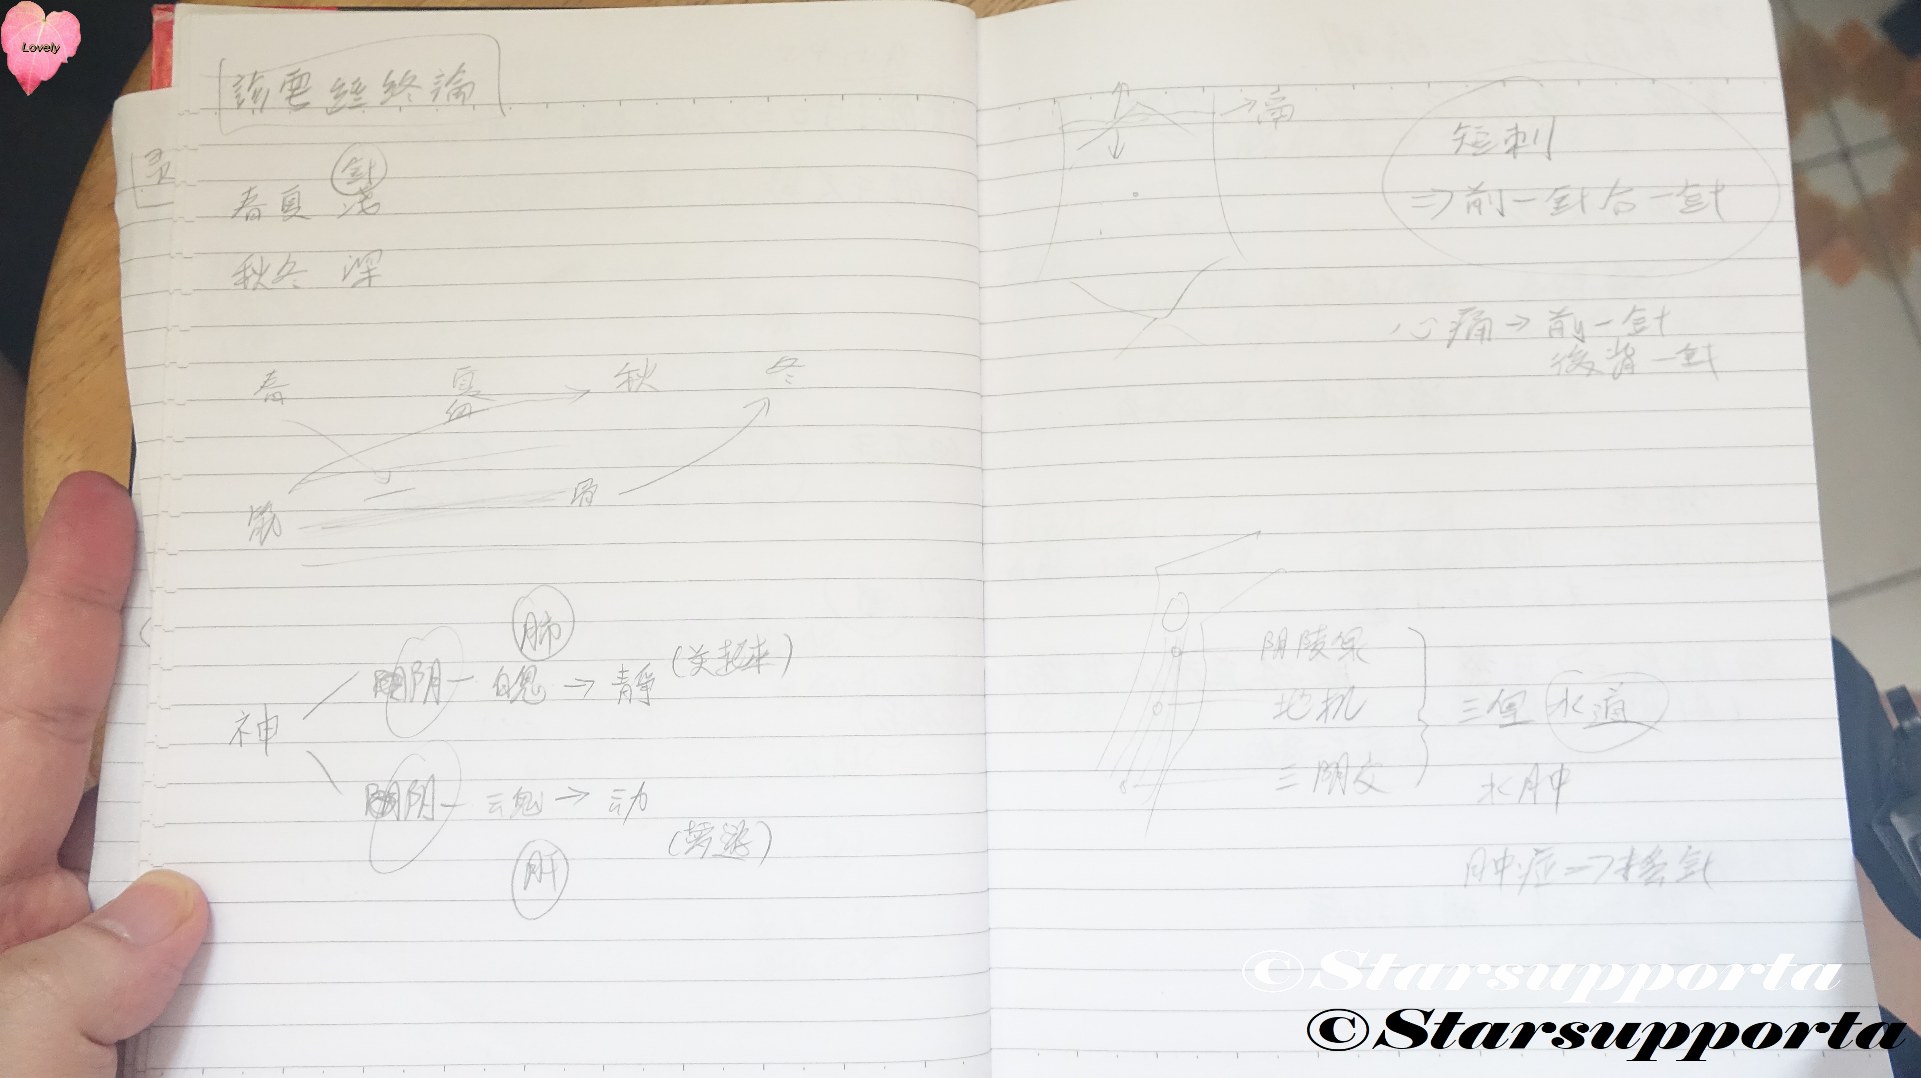 Lovely
診要經終論
針
春夏 浅
秋冬 深
春 夏 秋 冬
筋 骨
肺
阴一 白鬼 → 靜 (关起来)
神
阴一 云鬼 → 动
(梦游)
肝
→ 痛
短刺
⇒ 前一針后一針
心痛 → 前一針
後背一針
阴陵泉
地机
三阴交
三皇 水道
水肿
肿症 ⇒
©Starsupporta
©Starsupporta